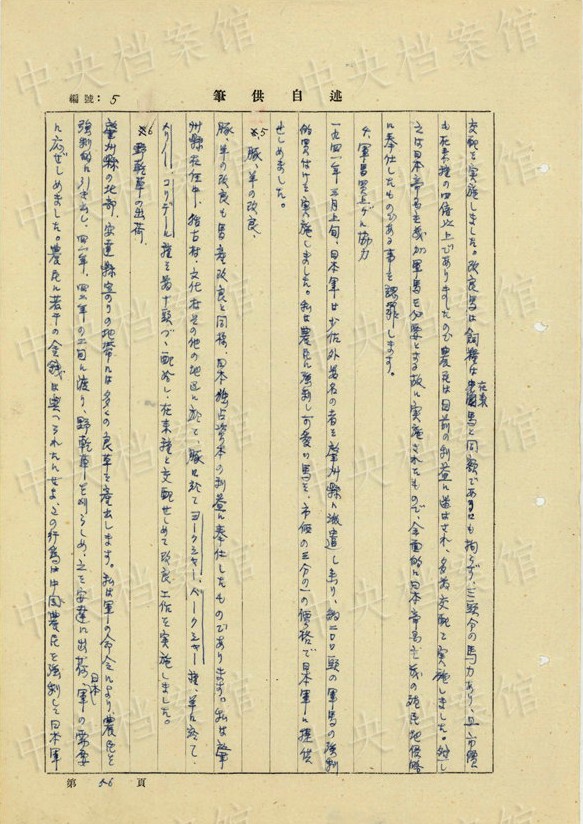 筆供自述
編號：5
交配を実施しました。改良馬は飼糧は在来馬と同額であるにも拘らず、三頭分の馬力あり、且市価
も在来種の四倍以上でありましたので農民は目前の利益に迷はされ、多数交配を実施しました。然し
之は日本帝国主義が軍馬を必要とする故に実施されたもので、全面的に日本帝国主義の植民地侵略
に奉仕したものである事を認罪します。
4、軍馬買上げに協力
一九四一年三月上旬、日本軍は少佐外数名の者を肇州縣に派遣し来り、約二〇〇頭の軍馬の強制
的買上げを実施しました。私は農民に強制し可愛い馬を、市価の三分の一の価格で日本軍に提供
せしめました。
5、豚、羊の改良、
豚、羊の改良も馬産改良と同様、日本独占資本の利益に奉仕したものであります。私は肇
州縣在任中、託古村、文化村その他の地区に於て、豚に於てヨークシャー、バークシャー種、羊に於て
メリノー、コリデール種を数十頭づゝ配給し、在来種と交配せしめて改良工作を実施しました。
6 野乾草の出荷、
肇州縣の北部、安達縣寄りの地帯には多くの良草を産出します。私は日本軍の命令により、農民を
強制的に引き出し、四一年、四二年の二回に渡り、野乾草を刈らしめ、之を安達に出荷し、軍の需要
に応ぜしめました。農民に若干の金銭は与へられたにせよ、この行為は中国農民を強制して日本軍
第 56 頁